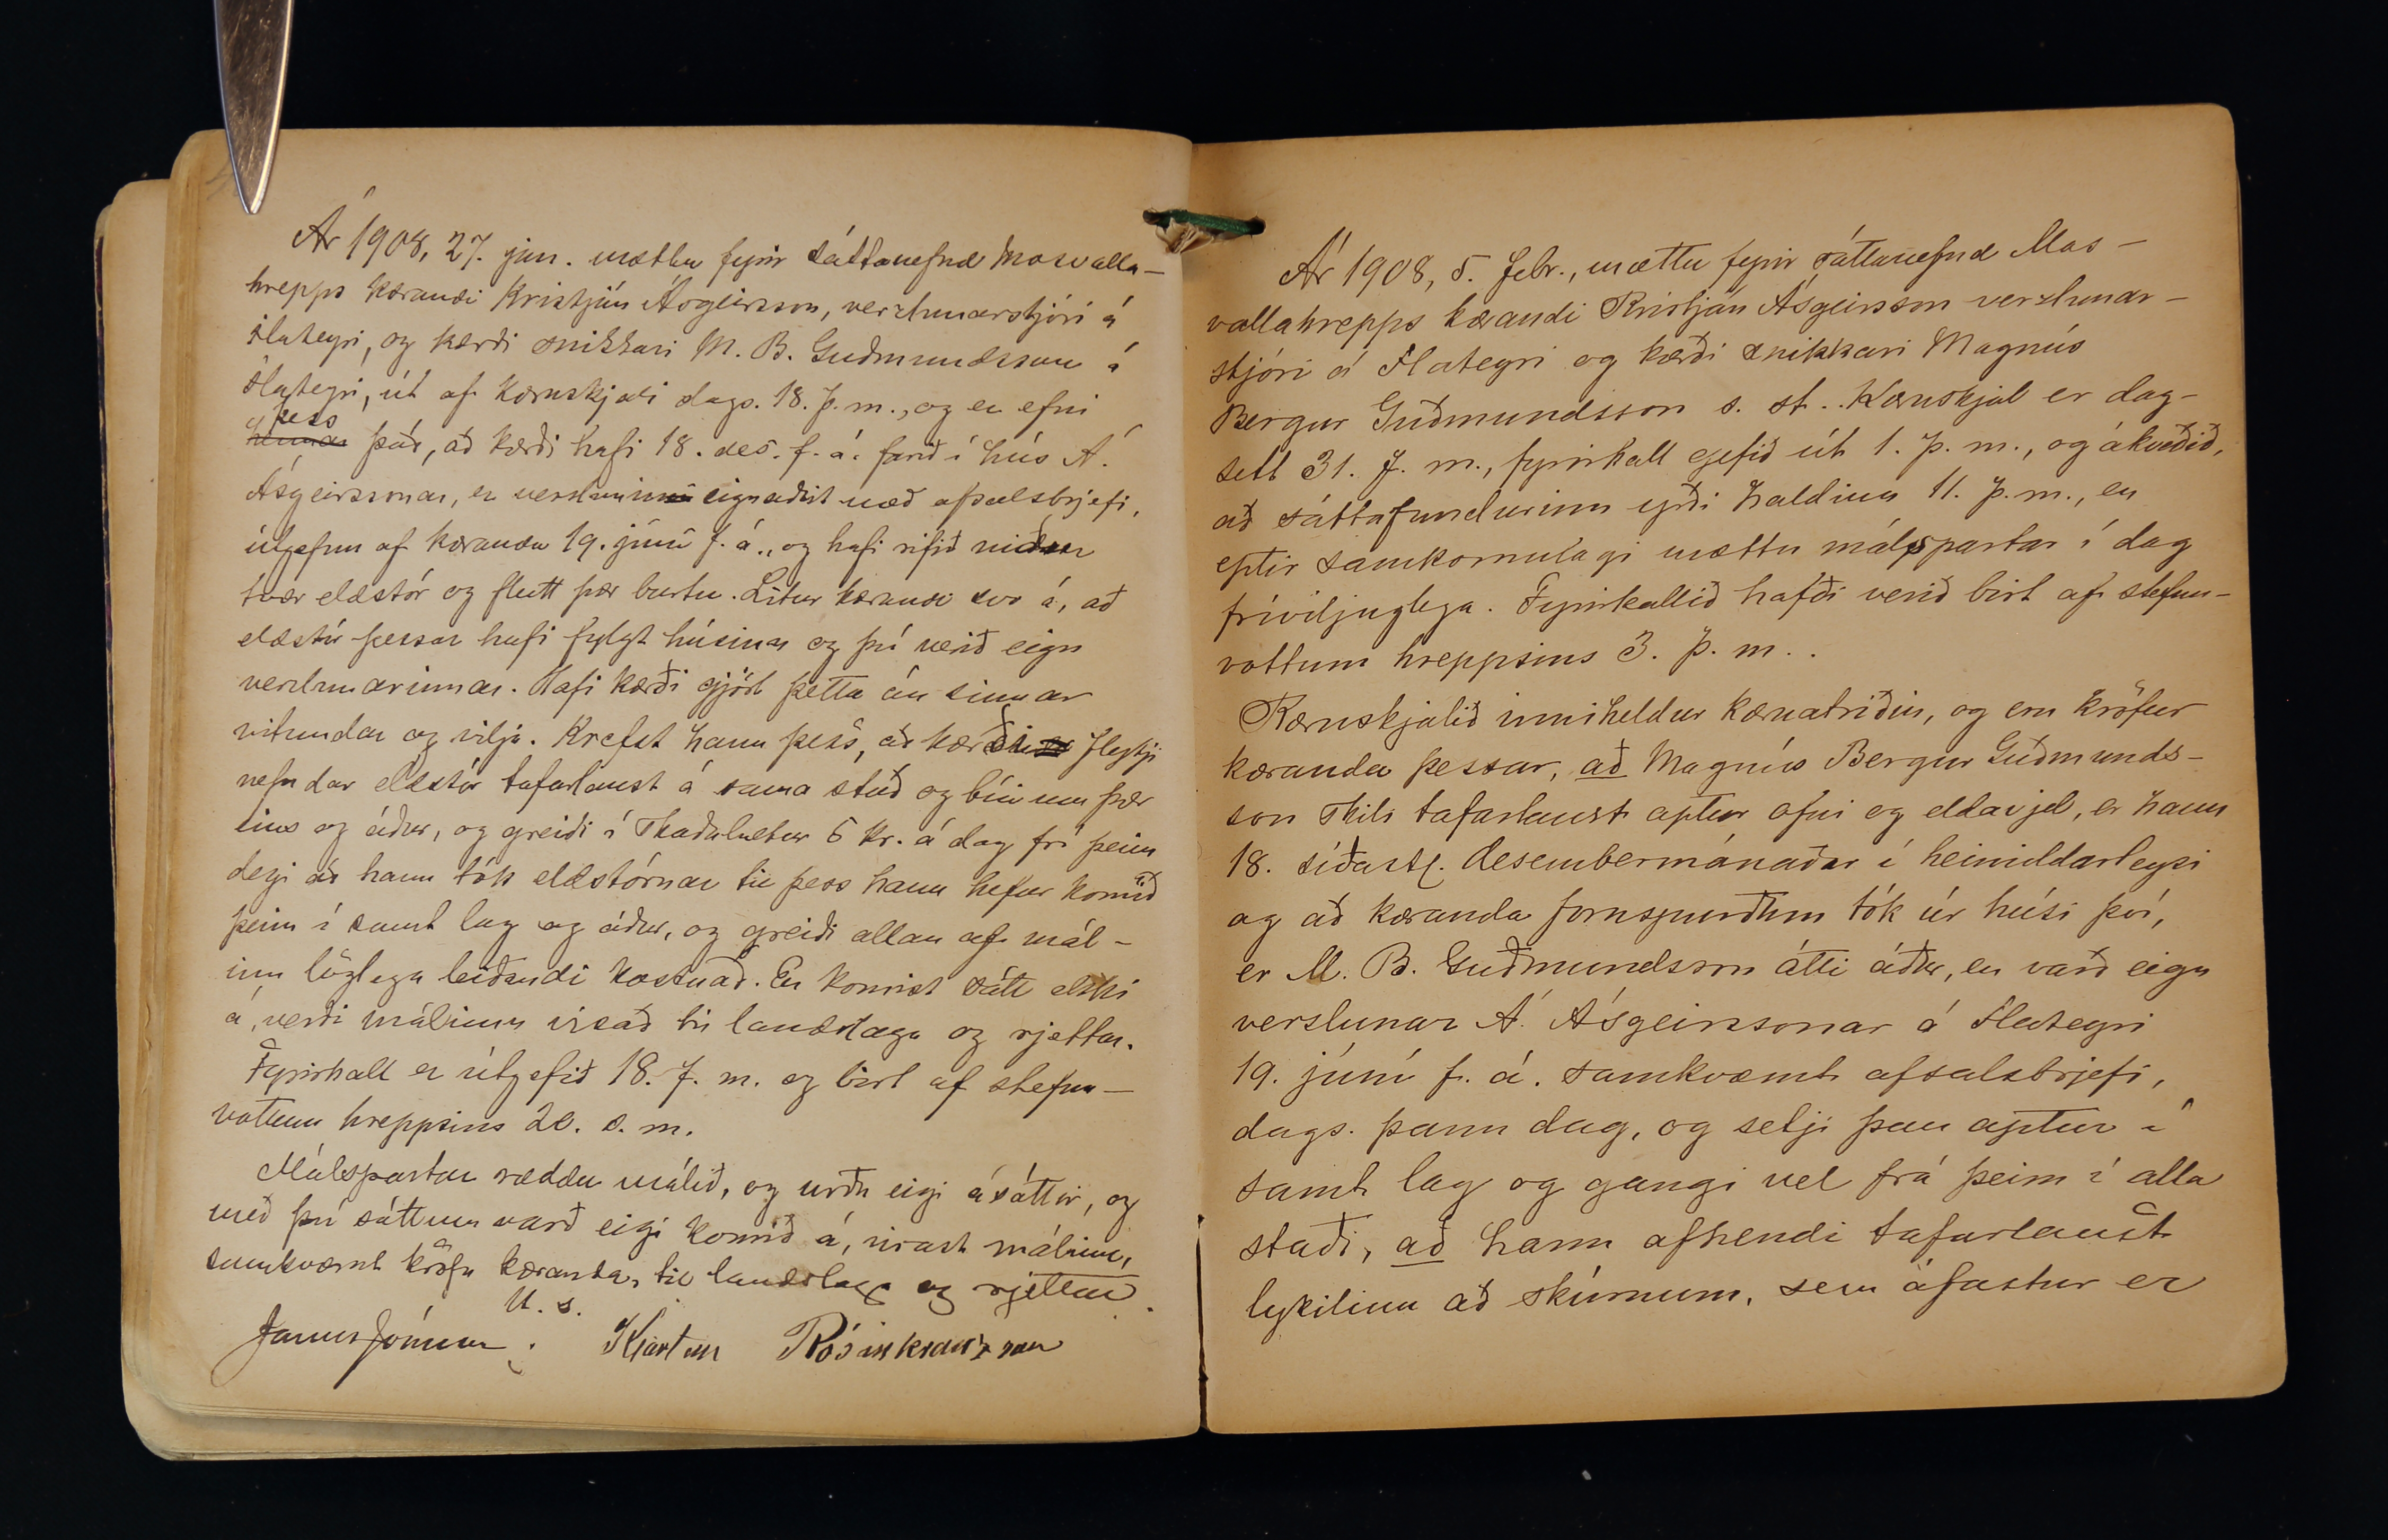 Ár 1908, 27. jan. mættu fyrir sáttanefnd Mosvalla-
hrepps kærandi Kristján Ásgeirsson, verzlunarstjóri á
Flateyri, og kærði snikkari M. B. Guðmundsson á
Flateyri, út af kæruskjali dags. 18. þ. m., og er efni
þess
hennar það, að kærði hafi 18. des. f. á. farið í hús Á.
Ásgeirssonar, er verslunin eignaðist með afsalsbrjefi,
útgefnu af kæranda 19. júní f. á., og hafi rifið niður
tvær eldstór og flutt þær burtu. Lítur kærandi svo á, að
eldstór þessar hafi fylgt húsinu og því verið eign
verzlunarinnar. Hafi kærði gjört þetta án sinnar
vitundar og vilja. Krefst hann þess, að kærði flytji
nefndar eldstór tafarlaust á sama stað og búi um þær
eins og áður, og greiði í skaðabætur 5 kr. á dag frá þeim
degi að hann tók eldstórnar til þess hann hefur komið
þeim í samt lag og áður, og greiði allan af mál-
inu löglega leiðandi kostnað. En komist sátt ekki
á, verði málinu vísað til landslaga og rjettar.
Fyrirkall er útgefið 18. þ. m. og birt af stefnu-
vottum hreppsins 20. s. m.
Málspartar ræddu málið, og urðu eigi ásáttir, og
með því sáttum varð eigi komið á, vísast málinu,
samkvæmt kröfu kæranda, til landslaga og rjettar.
U. s.
Janus Jónsson. Kjartan Rósinkranzson
Ár 1908, 5. febr., mættu fyrir sáttanefnd Mos-
vallahrepps kærandi Kristján Ásgeirsson verzlunar-
stjóri á Flateyri og kærði snikkari Magnús
Bergur Guðmundsson s. st.. Kæruskjal er dag-
sett 31. f. m., fyrirkall gefið út 1. þ. m., og ákveðið,
að sáttafundurinn yrði haldinn 11. þ. m., en
eptir samkomulagi mættu málspartar í dag
fríviljuglega. Fyrirkallið hafði verið birt af stefnu-
vottum hreppsins 3. þ. m..
Kæruskjalið inniheldur kæruatriðin, og eru kröfur
kæranda þessar, að Magnús Bergur Guðmunds-
son skili tafarlaust aptur ofni og eldavjel, er hann
18. síðastl. desembermánaðar í heimildarleysi
og að kæranda fornspurðum tók úr húsi því,
er M. B. Guðmundsson átti áður, en varð eign
verslunar Á. Ásgeirssonar á Flateyri
19. júní f. á. samkvæmt afsalsbrjefi,
dags. þann dag, og setji þau aptur í
samt lag og gangi vel frá þeim í alla
staði, að hann afhendi tafarlaust
lykilinn að skúrnum, sem áfastur er